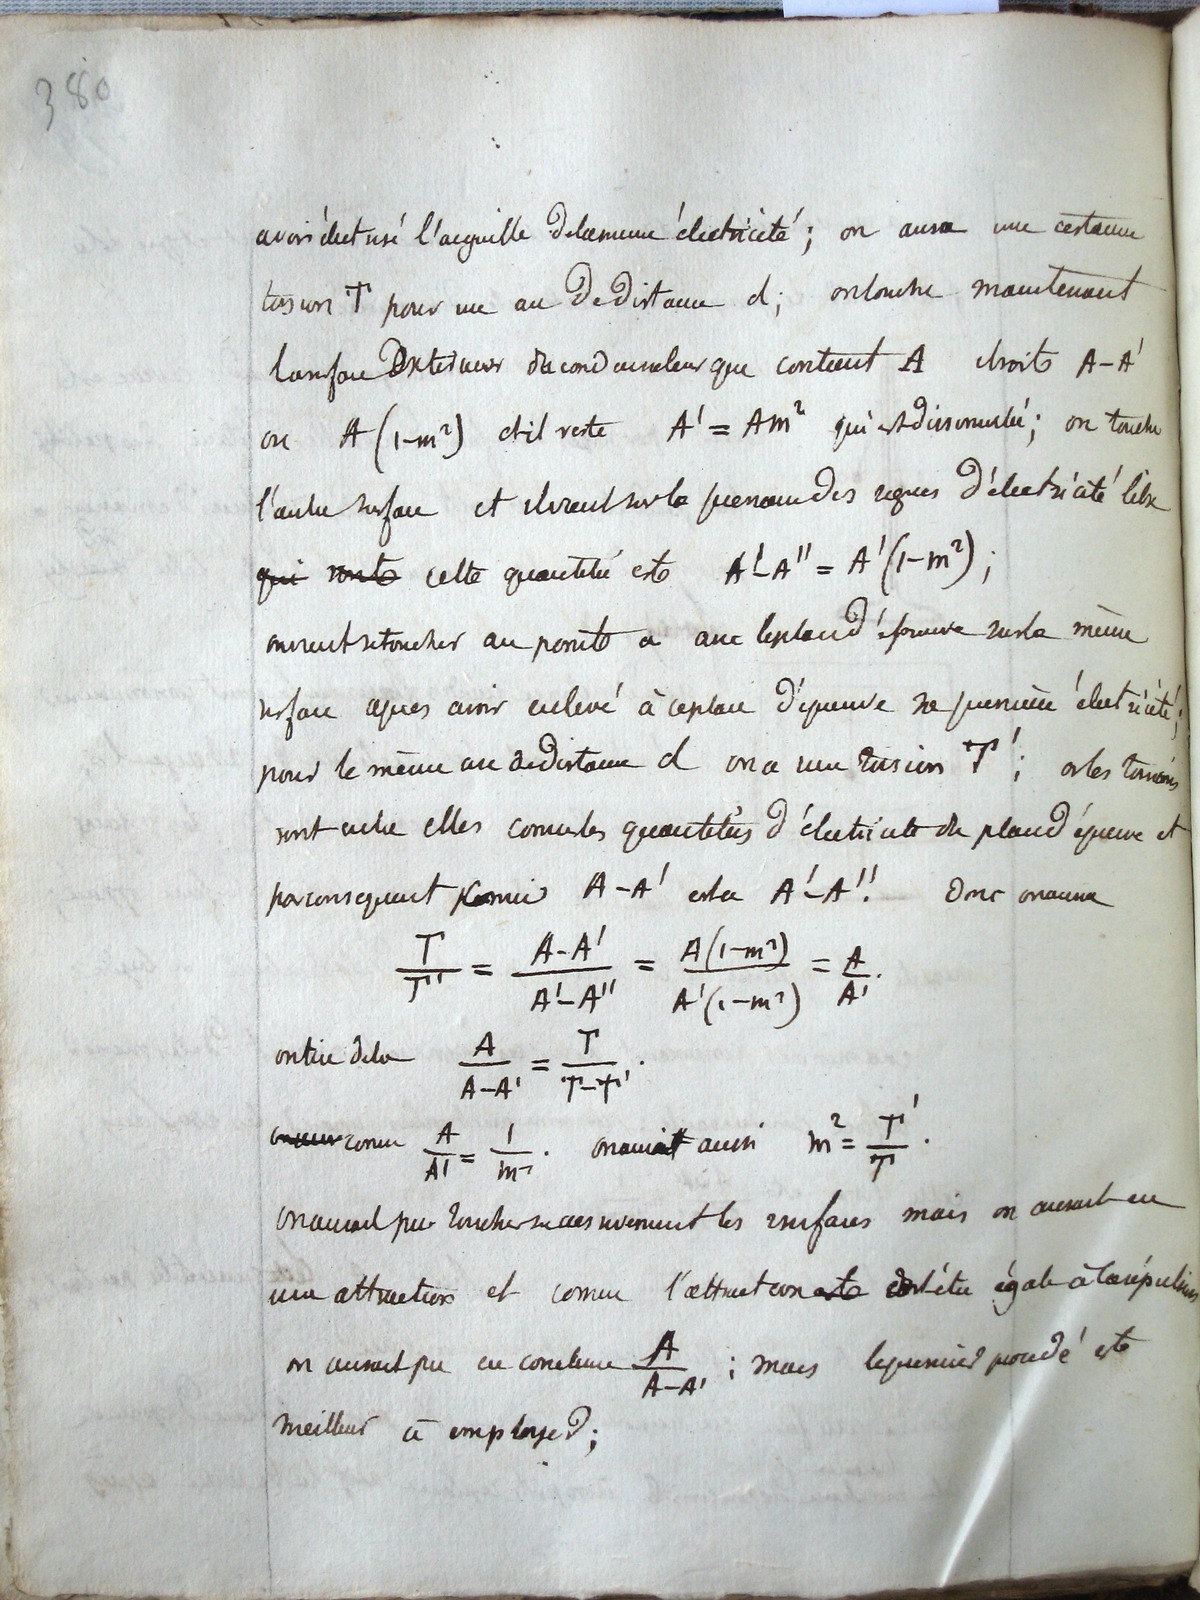 380
avoir électrisé l'aeguille de la meme électricité; on aura une certaine
torsion T pour une au de distance d; on touche maintenant
la surface exterieur du condensateur que contient A il voit A-A'
ou A(1-m²) et il reste A' = Am² qui est dissimulée; on touche
l'autre surface et il vient sur la premiere des signes d'électricité libre
qui reste cette quantité est A'-A'' = A'(1-m²);
on vient retoucher au point a avec le plan d'épreuve sur la même
surface apres avoir enlevé à ce plan d'épreuve sa première électricité;
pour le même arc de distance d on a une torsion T'; or les torsions
sont entre elles comme les quantités d'électricité du plan d'épreuve et
par consequent comme A-A' est a A'-A''. Donc on aura
T/T' = (A-A')/(A'-A'') = A(1-m²)/A'(1-m²) = A/A'.
on tire de la A/(A-A') = T/(T-T').
comme A/A' = 1/m². on aurait aussi m² = T'/T.
on aurait pu toucher successivement les surfaces mais on aurait eu
une attraction et comme l'attraction est été égale à la répulsion
on aurait pu en conclure A/(A-A'); mais le premier procédé est
meilleur à employer;